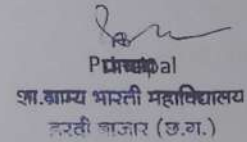 Principal
शा.ग्राम्य भारती महाविद्यालय
हरदी बाजार (छ.ग.)